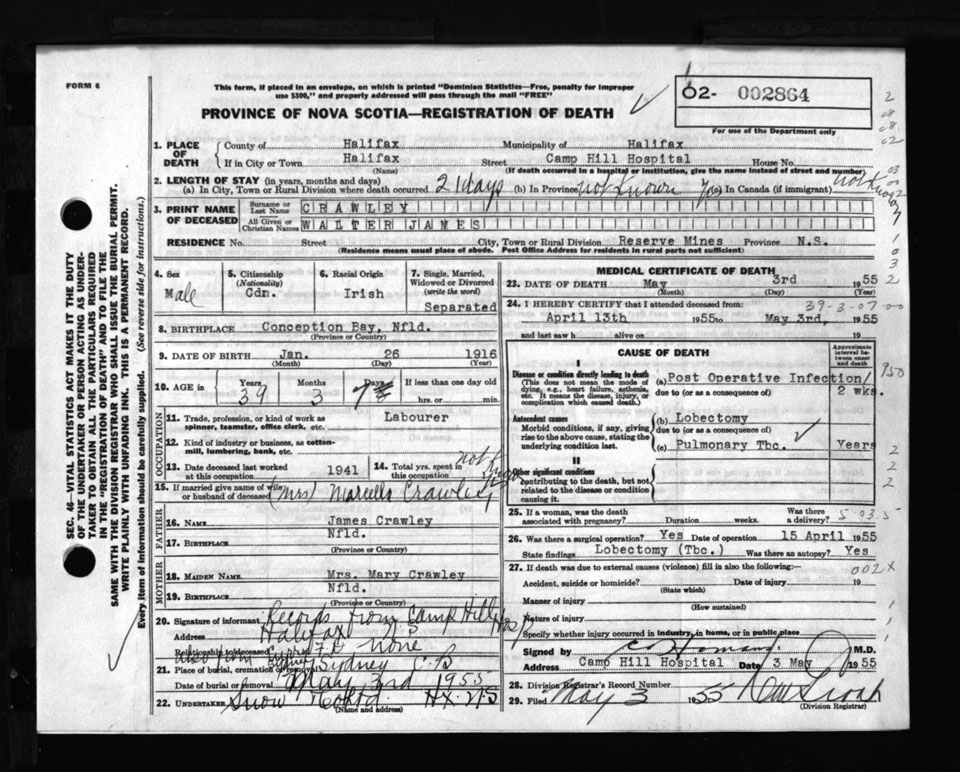 FORM 6
This form, if placed in an envelope, on which is printed "Dominion Statistics—Free, penalty for improper
use $300," and properly addressed will pass through the mail "FREE"
PROVINCE OF NOVA SCOTIA—REGISTRATION OF DEATH
02- 002864
For use of the Department only
SEC. 46—VITAL STATISTICS ACT MAKES IT THE DUTY
OF THE UNDERTAKER OR PERSON ACTING AS UNDER-
TAKER TO OBTAIN ALL THE PARTICULARS REQUIRED
IN THE "REGISTRATION OF DEATH" AND TO FILE THE
SAME WITH THE DIVISION REGISTRAR WHO SHALL ISSUE THE BURIAL PERMIT.
WRITE PLAINLY WITH UNFADING INK. THIS IS A PERMANENT RECORD.
Every item of information should be carefully supplied. (See reverse side for instructions.)
1. PLACE OF DEATH
County of Halifax Municipality of Halifax
If in City or Town Halifax Street Camp Hill Hospital House No.
(Name) (If death occurred in a hospital or institution, give the name instead of street and number)
2. LENGTH OF STAY (in years, months and days)
(a) In City, Town or Rural Division where death occurred 21 days (b) In Province not known (c) in Canada (if immigrant)
3. PRINT NAME OF DECEASED
Surname or Last Name CRAWLEY
All Given or Christian Names WALTER JAMES
RESIDENCE No. Street City, Town or Rural Division Reserve Mines Province N.S.
(Residence means usual place of abode. Post Office Address for residents in rural parts not sufficient)
4. Sex Male
5. Citizenship (Nationality) Cdn.
6. Racial Origin Irish
7. Single, Married, Widowed or Divorced (write the word) Separated
8. BIRTHPLACE Conception Bay, Nfld.
(Province or Country)
9. DATE OF BIRTH Jan. 26 1916
(Month) (Day) (Year)
10. AGE in Years 39 Months 3 Days 7 If less than one day old
hrs. or min.
OCCUPATION
11. Trade, profession, or kind of work as spinner, teamster, office clerk, etc. Labourer
12. Kind of industry or business, as cotton-mill, lumbering, bank, etc.
13. Date deceased last worked at this occupation 1941
14. Total yrs. spent in this occupation not
15. If married give name of wife or husband of deceased (Mrs) Marcella Crawley
FATHER
16. NAME James Crawley
17. BIRTHPLACE Nfld.
(Province or Country)
MOTHER
18. MAIDEN NAME Mrs. Mary Crawley
19. BIRTHPLACE Nfld.
(Province or Country)
20. Signature of informant Records from Camp Hill Hosp
Address Halifax N S
Relationship to deceased None
21. Place of burial, cremation or removal Sydney C.B
Date of burial or removal May 3rd 1955
22. UNDERTAKER Snow & Co Ltd. Hx. NS
(Name and address)
MEDICAL CERTIFICATE OF DEATH
23. DATE OF DEATH May 3rd 1955
(Month) (Day) (Year)
24. I HEREBY CERTIFY that I attended deceased from: 39-3-07
April 13th 1955 to May 3rd, 1955
and last saw h alive on 19
CAUSE OF DEATH
Approximate interval between onset and death
I
Disease or condition directly leading to death
(This does not mean the mode of dying, e.g., heart failure, asthenia, etc. It means the disease, injury, or complication which caused death.)
(a) Post Operative Infection/ 2 wks.
due to (or as a consequence of)
Antecedent causes
Morbid conditions, if any, giving rise to the above cause, stating the underlying condition last.
(b) Lobectomy
due to (or as a consequence of)
(c) Pulmonary Tbc. Years
II
Other significant conditions
contributing to the death, but not related to the disease or condition causing it.
25. If a woman, was the death associated with pregnancy? Duration weeks. Was there a delivery?
5-03.5
26. Was there a surgical operation? Yes Date of operation 15 April 1955
State findings Lobectomy (Tbc.) Was there an autopsy? Yes
27. If death was due to external causes (violence) fill in also the following:— 002X
Accident, suicide or homicide? Date of injury 19
(State which)
Manner of injury
(How sustained)
Nature of injury
Specify whether injury occurred in industry, in home, or in public place
Signed by M.D.
Address Camp Hill Hospital Date 3 May 1955
28. Division Registrar's Record Number
29. Filed May 3 1955
(Division Registrar)